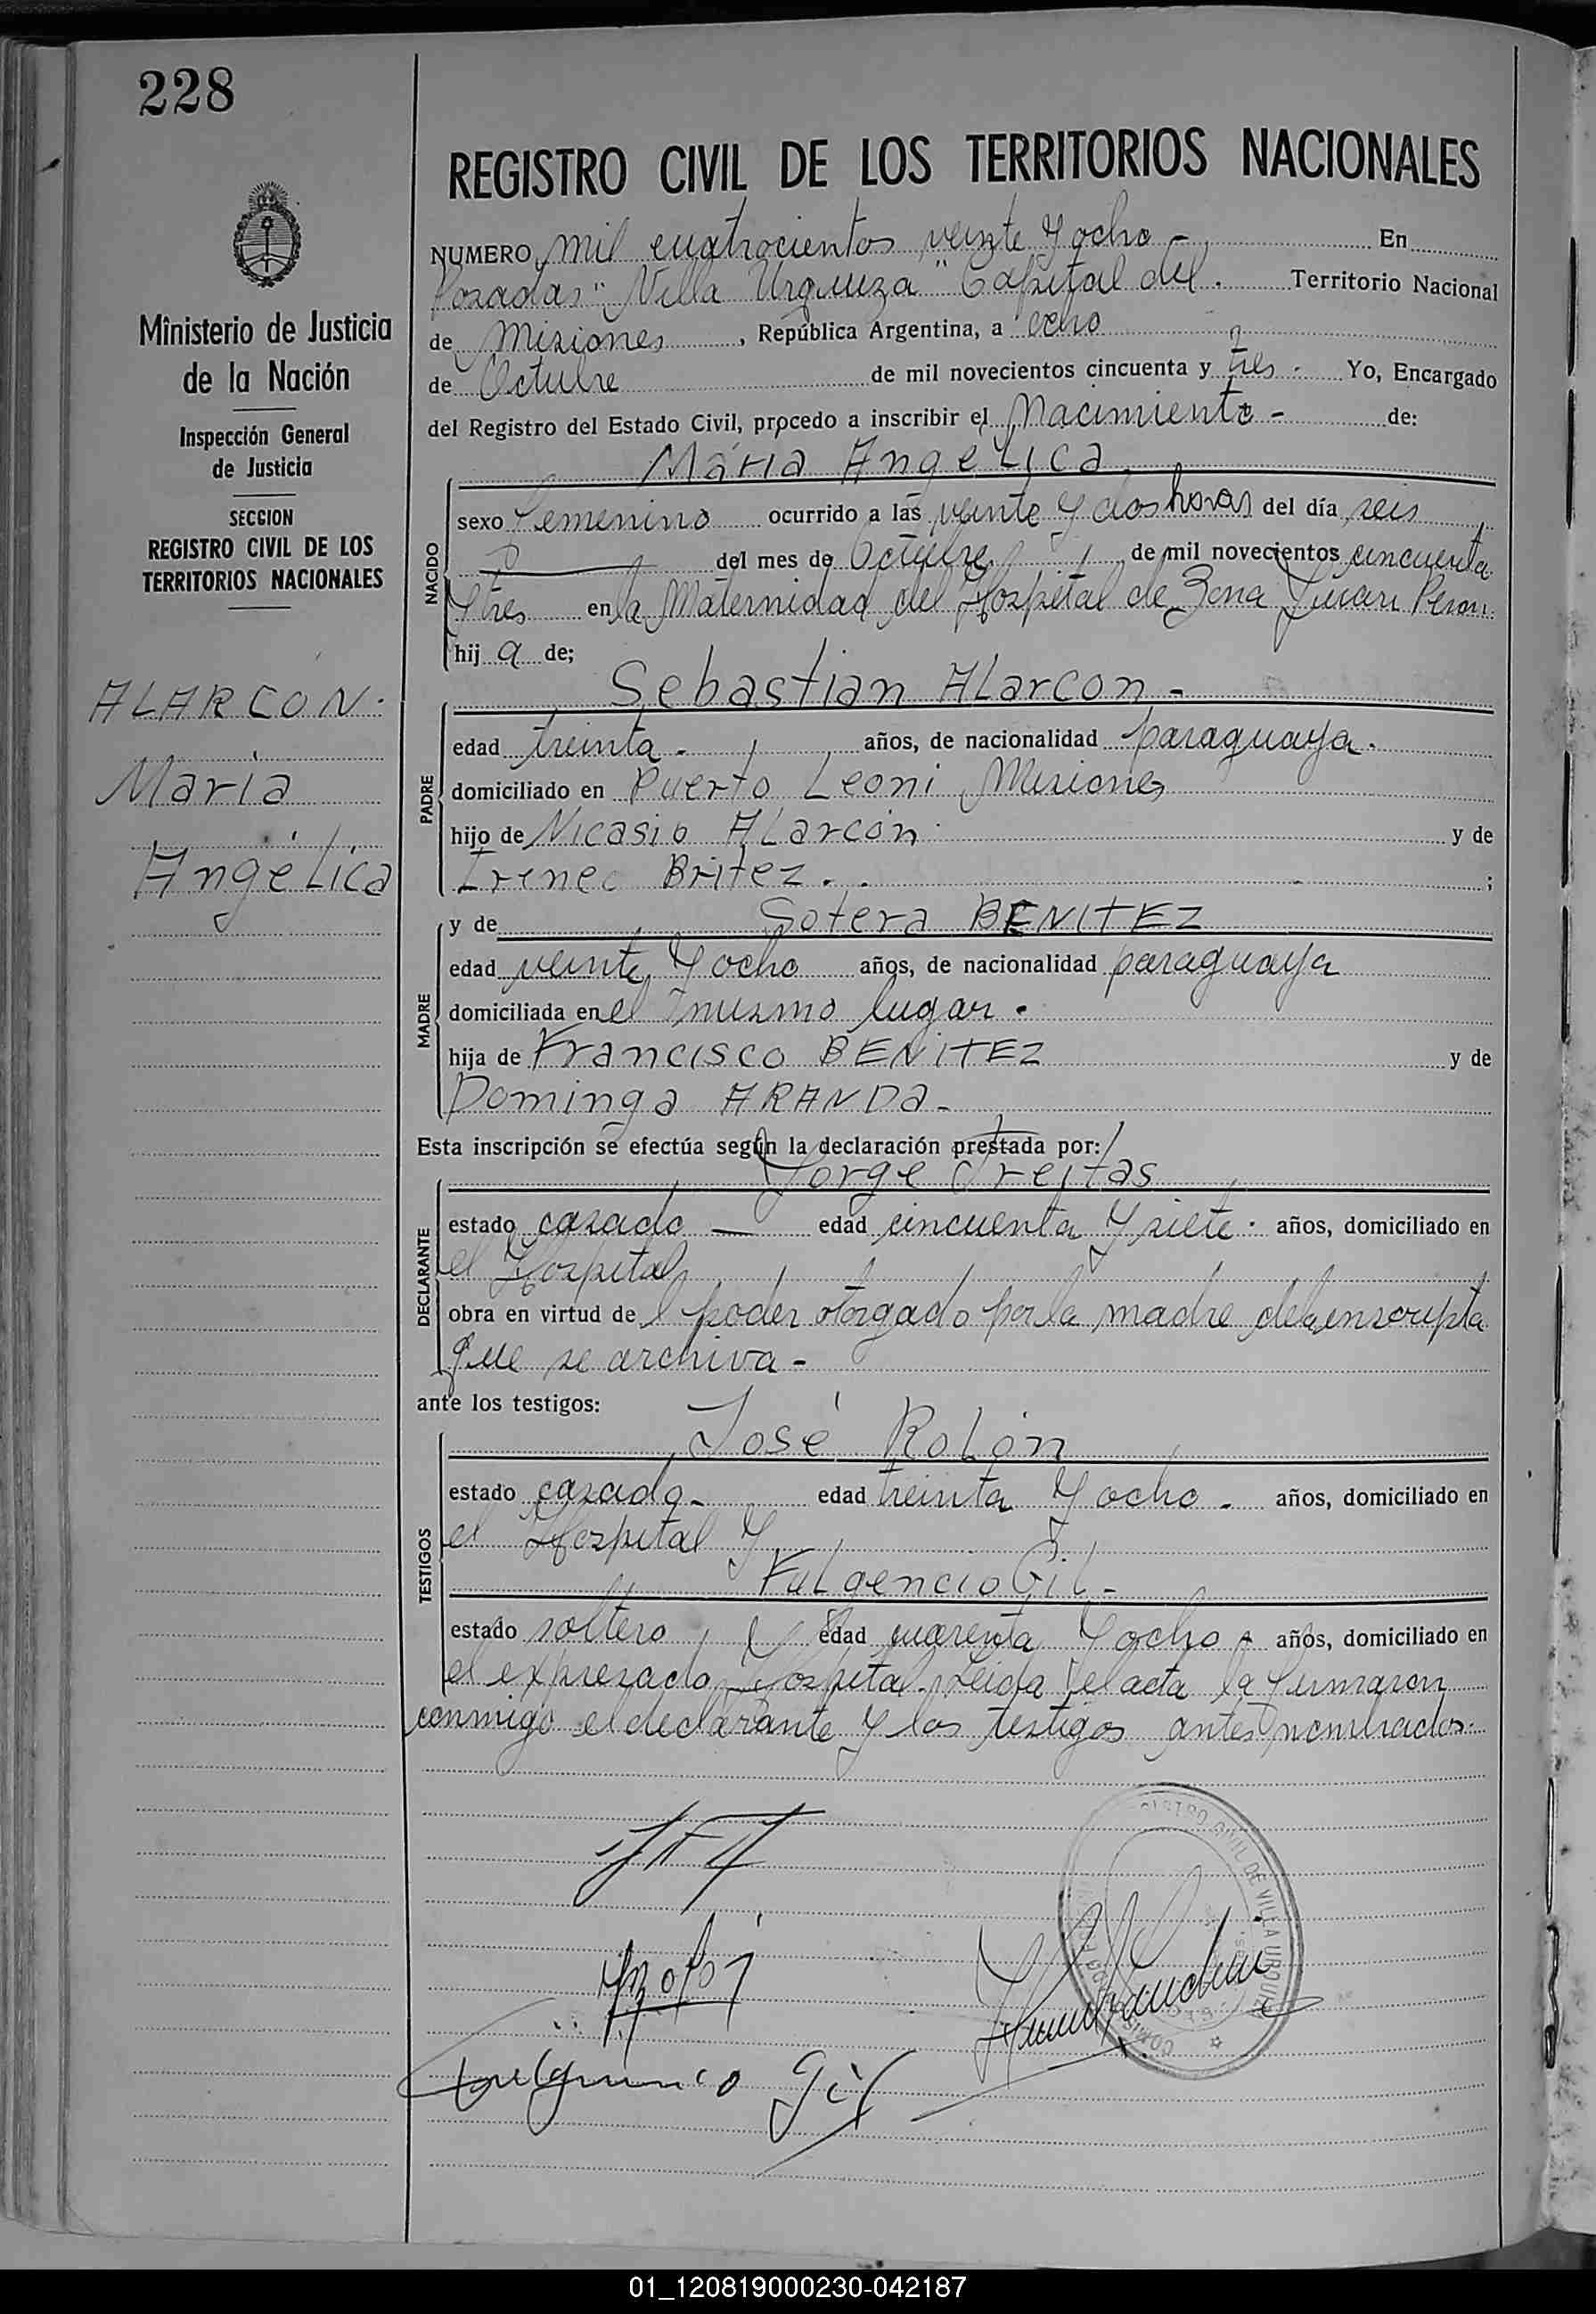 228
REGISTRO CIVIL DE LOS TERRITORIOS NACIONALES
NUMERO mil cuatrocientos veinte y ocho - En
Posadas "Villa Urquiza" Capital del. Territorio Nacional
de Misiones, República Argentina, a ocho
de Octubre de mil novecientos cincuenta y tres. Yo, Encargado
del Registro del Estado Civil, procedo a inscribir el Nacimiento - de:
María Angélica
NACIDO
sexo femenino ocurrido a las veinte y dos horas del día seis
del mes de Octubre de mil novecientos cincuenta
y tres en la Maternidad del Hospital de Zona Juan Peron
hija de;
Sebastian Alarcon -
PADRE
edad treinta - años, de nacionalidad paraguaya.
domiciliado en Puerto Leoni Misiones
hijo de Nicasio Alarcón y de
Irenec Britez. ;
y de Sotera BENITEZ
MADRE
edad veinte y ocho años, de nacionalidad paraguaya
domiciliada en el mismo lugar.
hija de Francisco BENITEZ y de
Dominga ARANDA -
Esta inscripción se efectúa según la declaración prestada por:
Jorge Freitas
DECLARANTE
estado casado — edad cincuenta y siete. años, domiciliado en
el Hospital
obra en virtud del poder otorgado por la madre de la inscripta
que se archiva -
ante los testigos:
José Rolón
TESTIGOS
estado casado - edad treinta y ocho - años, domiciliado en
el Hospital y
Fulgencio Gil -
estado soltero, edad cuarenta y ocho - años, domiciliado en
el expresado Hospital. Leida el acta la firmaron
conmigo el declarante y los testigos antes nombrados.
Fulgencio Gil
REGISTRO CIVIL DE VILLA URQUIZA
Ministerio de Justicia
de la Nación
Inspección General
de Justicia
SECCION
REGISTRO CIVIL DE LOS
TERRITORIOS NACIONALES
ALARCON.
María
Angélica
01_120819000230-042187